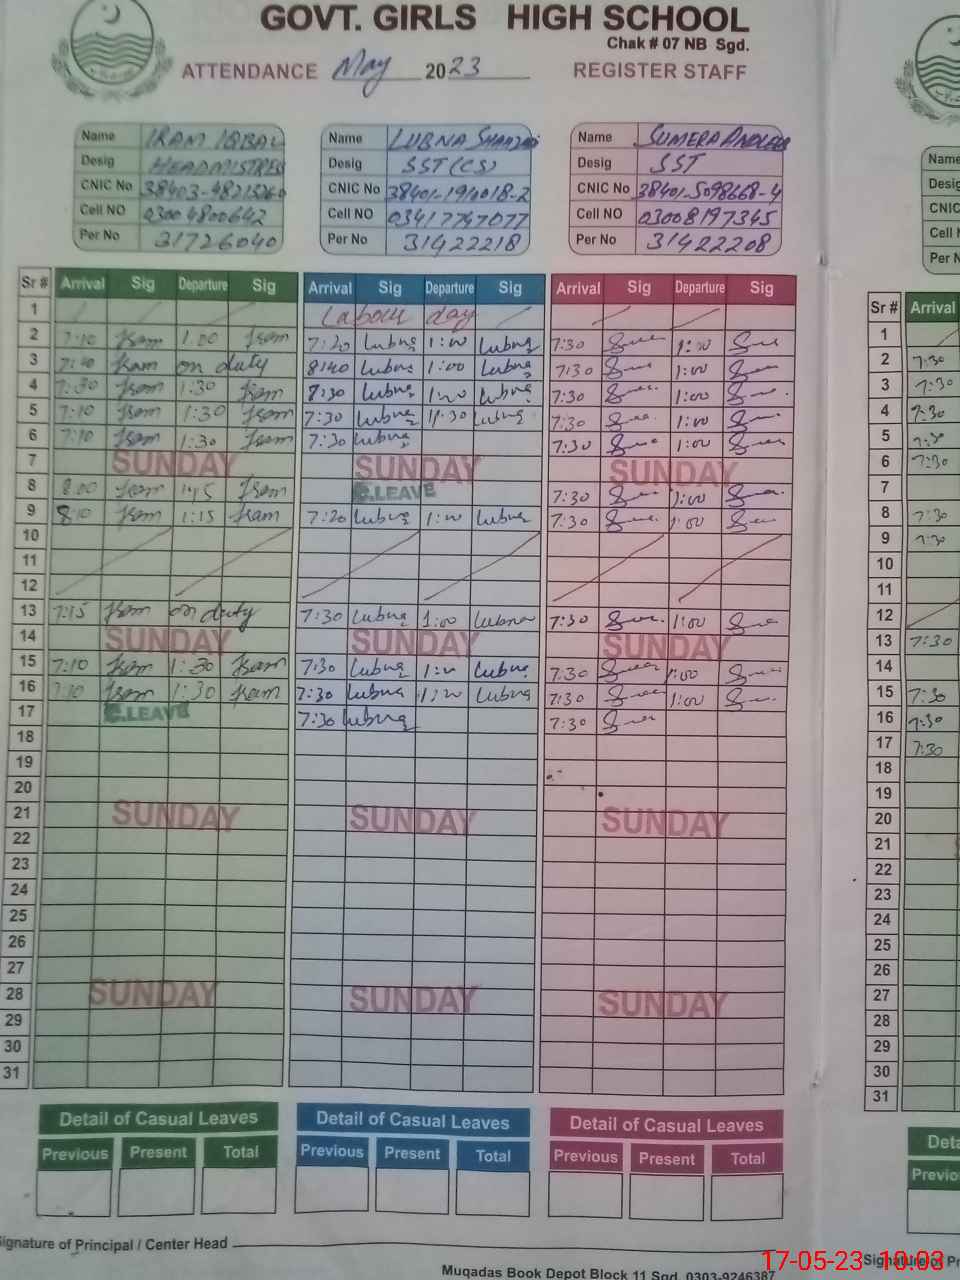 GOVT. GIRLS HIGH SCHOOL
Chak # 07 NB Sgd.
ATTENDANCE May 2023 REGISTER STAFF
Name IRAM IQBAL Name LUBNA Name SUMERA Name
Desig HEADMISTRESS Desig SST (CS) Desig SST Desig
CNIC No CNIC No 38401-1914018-2 CNIC No 38401-5098668-4 CNIC
Cell NO 03004800642 Cell NO 03417747077 Cell NO 03008197345 Cell
Per No 31726040 Per No 31422218 Per No 31422208 Per N
Sr # Arrival Sig Departure Sig Arrival Sig Departure Sig Arrival Sig Departure Sig Sr # Arrival
1 Labour day 1
2 7:10 Iram 1:00 Iram 7:20 Lubna 1:00 Lubna 7:30 2 7:30
3 Iram on duty 8:40 Lubna 1:00 Lubna 7:30 1:00 3 7:30
4 7:30 Iram 1:30 Iram Lubna Lubna 7:30 1:00 4 7:30
5 7:10 Iram 1:30 Iram 7:30 Lubna Lubna 7:30 1:00 5 7:30
6 7:10 Iram 1:30 Iram 7:30 Lubna 7:30 1:00 6 7:30
7 SUNDAY SUNDAY SUNDAY 7
8 8:00 Iram Iram C.LEAVE 7:30 1:00 8 7:30
9 8:10 Iram 1:15 Iram 7:20 Lubna 1:00 Lubna 7:30 1:00 9 7:30
10 10
11 11
12 12
13 7:15 Iram on duty 7:30 Lubna 1:00 Lubna 7:30 1:00 13 7:30
14 SUNDAY SUNDAY SUNDAY 14
15 7:10 Iram 1:30 Iram 7:30 Lubna Lubna 7:30 1:00 15 7:30
16 7:10 Iram 1:30 Iram 7:30 Lubna Lubna 7:30 1:00 16 7:30
17 C.LEAVE 7:30 Lubna 7:30 17 7:30
18 18
19 19
20 20
21 SUNDAY SUNDAY SUNDAY 21
22 22
23 23
24 24
25 25
26 26
27 27
28 SUNDAY SUNDAY SUNDAY 28
29 29
30 30
31 31
Detail of Casual Leaves Detail of Casual Leaves Detail of Casual Leaves Deta
Previous Present Total Previous Present Total Previous Present Total Previo
Signature of Principal / Center Head Signature of Pr
Muqadas Book Depot Block 11 Sgd. 0303-9246387
17-05-23 10:03